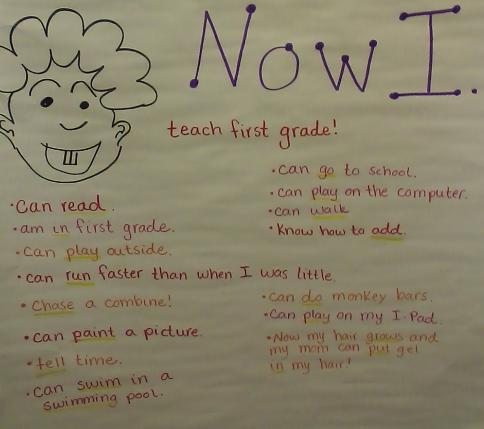 Now I.
teach first grade!
• can go to school.
• can play on the computer.
• can walk
• Know how to add.
• Can read.
• am in first grade.
• can play outside.
• can run faster than when I was little.
• Chase a combine!
• can paint a picture.
• tell time.
• can swim in a
swimming pool.
• can do monkey bars.
• Can play on my I-Pad.
• Now my hair grows and
my mom can put gel
in my hair!